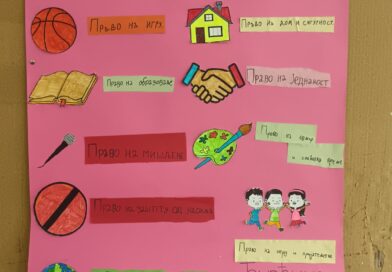 Право на игру
Право на дом и сигурност.
Право на образовање
Право на једнакост
Право на мишљење
Право на
и слободно време
Право на заштиту од насиља
Право на игру и пријатеље